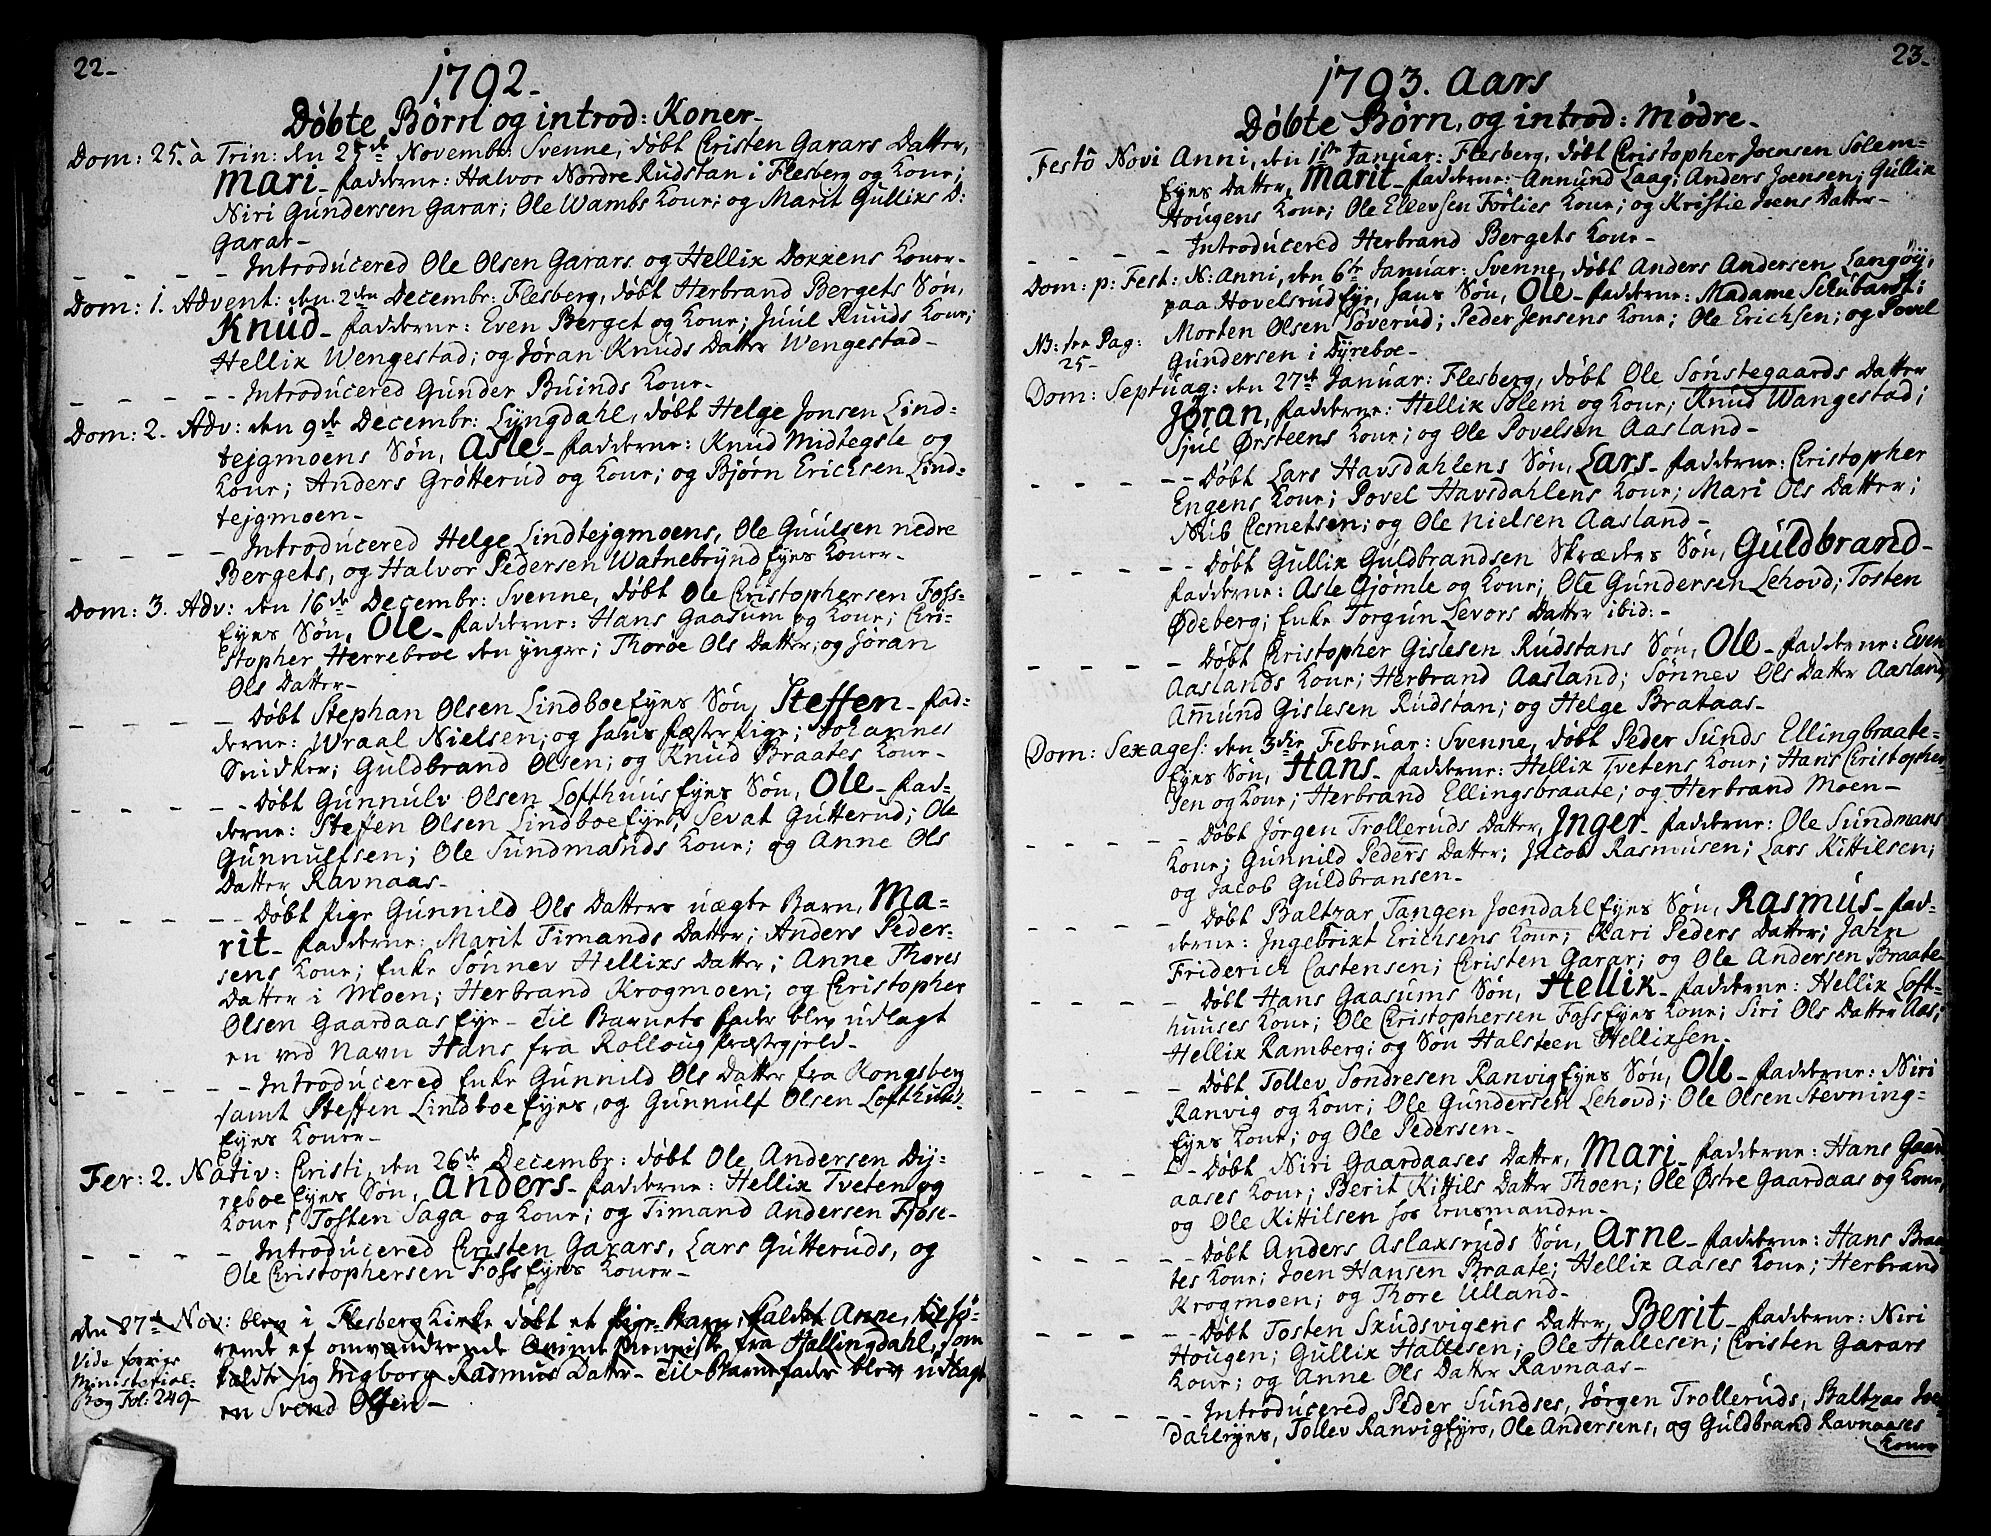 22.
1792.
Døbte Børn og introd: Koner.
Dom: 25. à Trin: den 25de Novembr: Svenne, døbt Christen Garars Datter,
Mari. Fadderne: Halvor Nordre Rudstan i Flesberg og Kone;
Niri Gundersen Garar; Ole Wambs Kone; og Marit Gullixs D:
Garar.
- - - - - Introducered Ole Olsen Garars og Hellix Doxxens Koner.
Dom: 1. Advent: den 2den Decembr: Flesberg, døbt Herbrand Bergets Søn,
Knud. Fadderne: Even Berget og Kone; Juul Ruuds Kone;
Hellix Wengestad; og Jøran Knuds Datter Wengestad.
- - - - - Introducered Gunder Buinds Kone.
Dom: 2. Adv: den 9de Decembr: Lyngdahl, døbt Helge Jonsen Lind-
tejgmoens Søn, Asle. Fadderne: Knud Midtegsle og
Kone; Anders Grøtterud og Kone; og Bjørn Erichsen Lind-
tejgmoen.
- - - - - Introducered Helge Lindtejgmoens, Ole Guulsen nedre
Bergets, og Halvor Pedersen Watnebrynd Eyes Koner.
Dom: 3. Adv: den 16de Decembr: Svenne, døbt Ole Christophersen Foss-
Eyes Søn, Ole. Fadderne: Hans Gaasum og Kone; Cri-
stopher Herrebroe den ynger; Thorøe Ols Datter; og Jøran
Ols Datter.
- - - - - Døbt Stephan Olsen Lindboe Eyes Søn, Steffen. Fad-
derne: Wraal Nielsen; og hans Fæste Pige; Johannes
Snidker; Guldbrand Olsen; og Knud Braates Kone.
- - - - - Døbt Gunnulv Olsen Lofthuus Eyes Søn, Ole. Fad-
derne: Steffen Olsen Lindboe Eye; Sevat Gutterud; Ole
Gunnulfsen; Ole Sundmands Kone; og Anne Ols
Datter Ravnaas.
- - - - - Døbt Pige Gunnild Ols Datters uægte Barn, Ma-
rit. Fadderne: Marit Timands Datter; Anders Peder-
sens Kone; Enke Sønnev Hellixs Datter; Anne Thores
Datter i Moen; Herbrand Krogmoen; og Christopher
Olsen Gaardaas Eye. Til Barnets Fader blev udlagt
en ved Navn Hans fra Rolloug Præstegield.
- - - - - Introducered Enke Gunnild Ols Datter fra Kongsberg
samt Steffen Lindboe Eyes, og Gunnulf Olsen Lofthuus-
Eyes Koner.
Fer: 2. Nativ: Christi, den 26de Decembr: døbt Ole Andersen Dy-
reboe Eyes Søn, Anders. Fadderne: Hellix Tveten og
Kone; Tosten Saga og Kone; og Timand Andersen Fjøse.
- - - - - Introducered Christen Garars, Lars Gutteruds, og
Ole Christophersen Foss Eyes Koner.
Den 27de Nov: blev i Flesberg Kirke døbt et Pige-Barn, kaldet Anne, tilhø-
rende et omvandrende Qvinde Menniske fra Hallingdahl, som
kaldte sig Ingborg Rasmus Datter. Til Barnefader blev udlagt
en Svend Olsen.
Vide forrige
Ministerial-
Bog Fol: 249.
23.
1793. Aars
Døbte Børn, og introd: Mødre.
Festô Novi Anni, den 1ste Januar: Flesberg, døbt Christopher Joensen Solem-
Eyes Datter, Marit. Fadderne: Annund Laag; Anders Joensen; Gullix
Hougens Kone; Ole Ellevsen Førlies Kone; og Kristie Joens Datter.
- - - - - Introducered Herbrand Bergets Kone.
Dom: p: Fest: N: Anni, den 6te Januar: Svenne, døbt Anders Andersen Langøy,
paa Hovelsrud Eye, hans Søn, Ole. Fadderne: Madame Schubart;
Morten Olsen Løverud; Peder Jensens Kone; Ole Erichsen; og Povel
Gundersen i Dyreboe.
NB: fra Pag:
25.
Dom: Septuag: den 27de Januar: Flesberg, døbt Ole Sønstegaards Datter
Jøran, Fadderne: Hellix Solem og Kone; Knud Wangestad;
Sjul Ørsteens Kone; og Ole Povelsen Aasland.
- - - - - Døbt Lars Havsdahlens Søn, Lars. Fadderne: Christopher
Engens Kone; Povel Havsdahlens Kone; Mari Ols Datter;
Nub Clemetsen; og Ole Nielsen Aasland.
- - - - - Døbt Gullix Guldbrandsen Skræders Søn, Guldbrand.
Fadderne: Asle Gjømle og Kone; Ole Gundersen Lehovd; Tosten
Ødeberg; Enke Torgun Levors Datter ibid:.
- - - - - Døbt Christopher Gislesen Rudstans Søn, Ole. Fadderne: Even
Aaslands Kone; Herbrand Aasland; Sønnev Ols Datter Aasland;
Amund Gislesen Rudstan; og Helge Brataas.
Dom: Sexages: den 3die Februar: Svenne, døbt Peder Sunds Ellingbraate-
Eyes Søn, Hans. Fadderne: Hellix Tvetens Kone; Hans Christopher-
sen og Kone; Herbrand Ellingsbraate; og Herbrand Moen.
- - - - - Døbt Jørgen Trolleruds Datter, Inger. Fadderne: Ole Sundmans
Kone; Gunnild Peders Datter; Jacob Rasmusen; Lars Kittilsen;
og Jacob Guldbransen.
- - - - - Døbt Baltzar Tangen Joendahl Eyes Søn, Rasmus. Fad-
derne: Ingebrixt Erichsens Kone; Kari Peders Datter; Jahn
Friderich Castensen; Christen Garar; og Ole Andersen Braate.
- - - - - Døbt Hans Gaasums Søn, Hellix. Fadderne: Hellix Loft-
huuses Kone; Ole Christophersen Foss Eyes Kone; Siri Ols Datter Aas;
Hellix Ramberg; og Søn Halsteen Hellixsen.
- - - - - Døbt Tollev Sondresen Ranvig Eyes Søn, Ole. Fadderne: Niri
Ranvig og Kone; Ole Gundersen Lehovd; Ole Olsen Stevning-
Eyes Kone; og Ole Pedersen.
- - - - - Døbt Niri Gaardaases Datter, Mari. Fadderne: Hans Gaard-
aases Kone; Berit Kittils Datter Thoen; Ole Østre Gaardaas og Kone;
og Ole Kittilsen hos Lensmanden.
- - - - - Døbt Anders Aslaxsruds Søn, Arne. Fadderne: Hans Braa-
tes Kone; Joen Hansen Braate; Hellix Aases Kone; Herbrand
Krogmoen; og Thore Ulland.
- - - - - Døbt Tosten Skudsvigens Datter, Berit. Fadderne: Niri
Hougen; Gullix Hallesen; Ole Hallesen; Christen Garars
Kone; og Anne Ols Datter Ravnaas.
- - - - - Introducered Peder Sundses, Jørgen Trolleruds, Baltzar Joe-
dahleyes, Tollev Ranvig Eyes, Ole Andersens, og Guldbrand Ravnaases
Koner